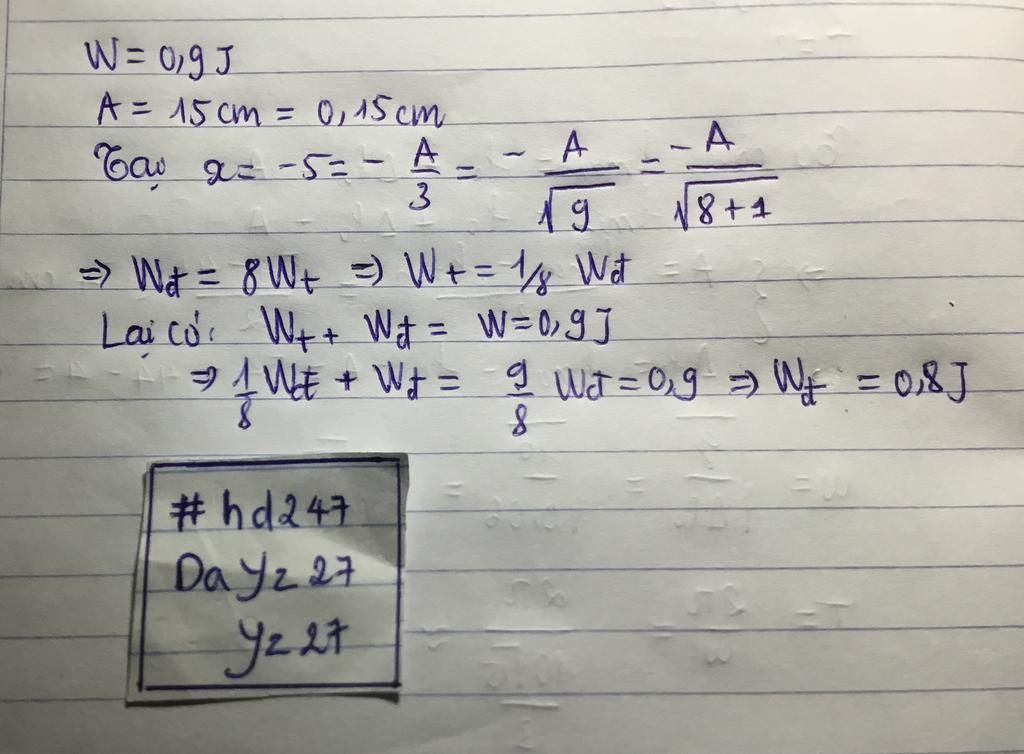 W = 0,9 J
A = 15 cm = 0,15 cm
Tại x = -5 = - A/3 = - A/√9 = -A/√8+1
=> Wđ = 8 Wt => Wt = 1/8 Wđ
Lại có: Wt + Wđ = W = 0,9 J
=> 1/8 Wđ + Wđ = 9/8 Wđ = 0,9 => Wđ = 0,8 J
# hd247
Da Yz 27
Yz 27